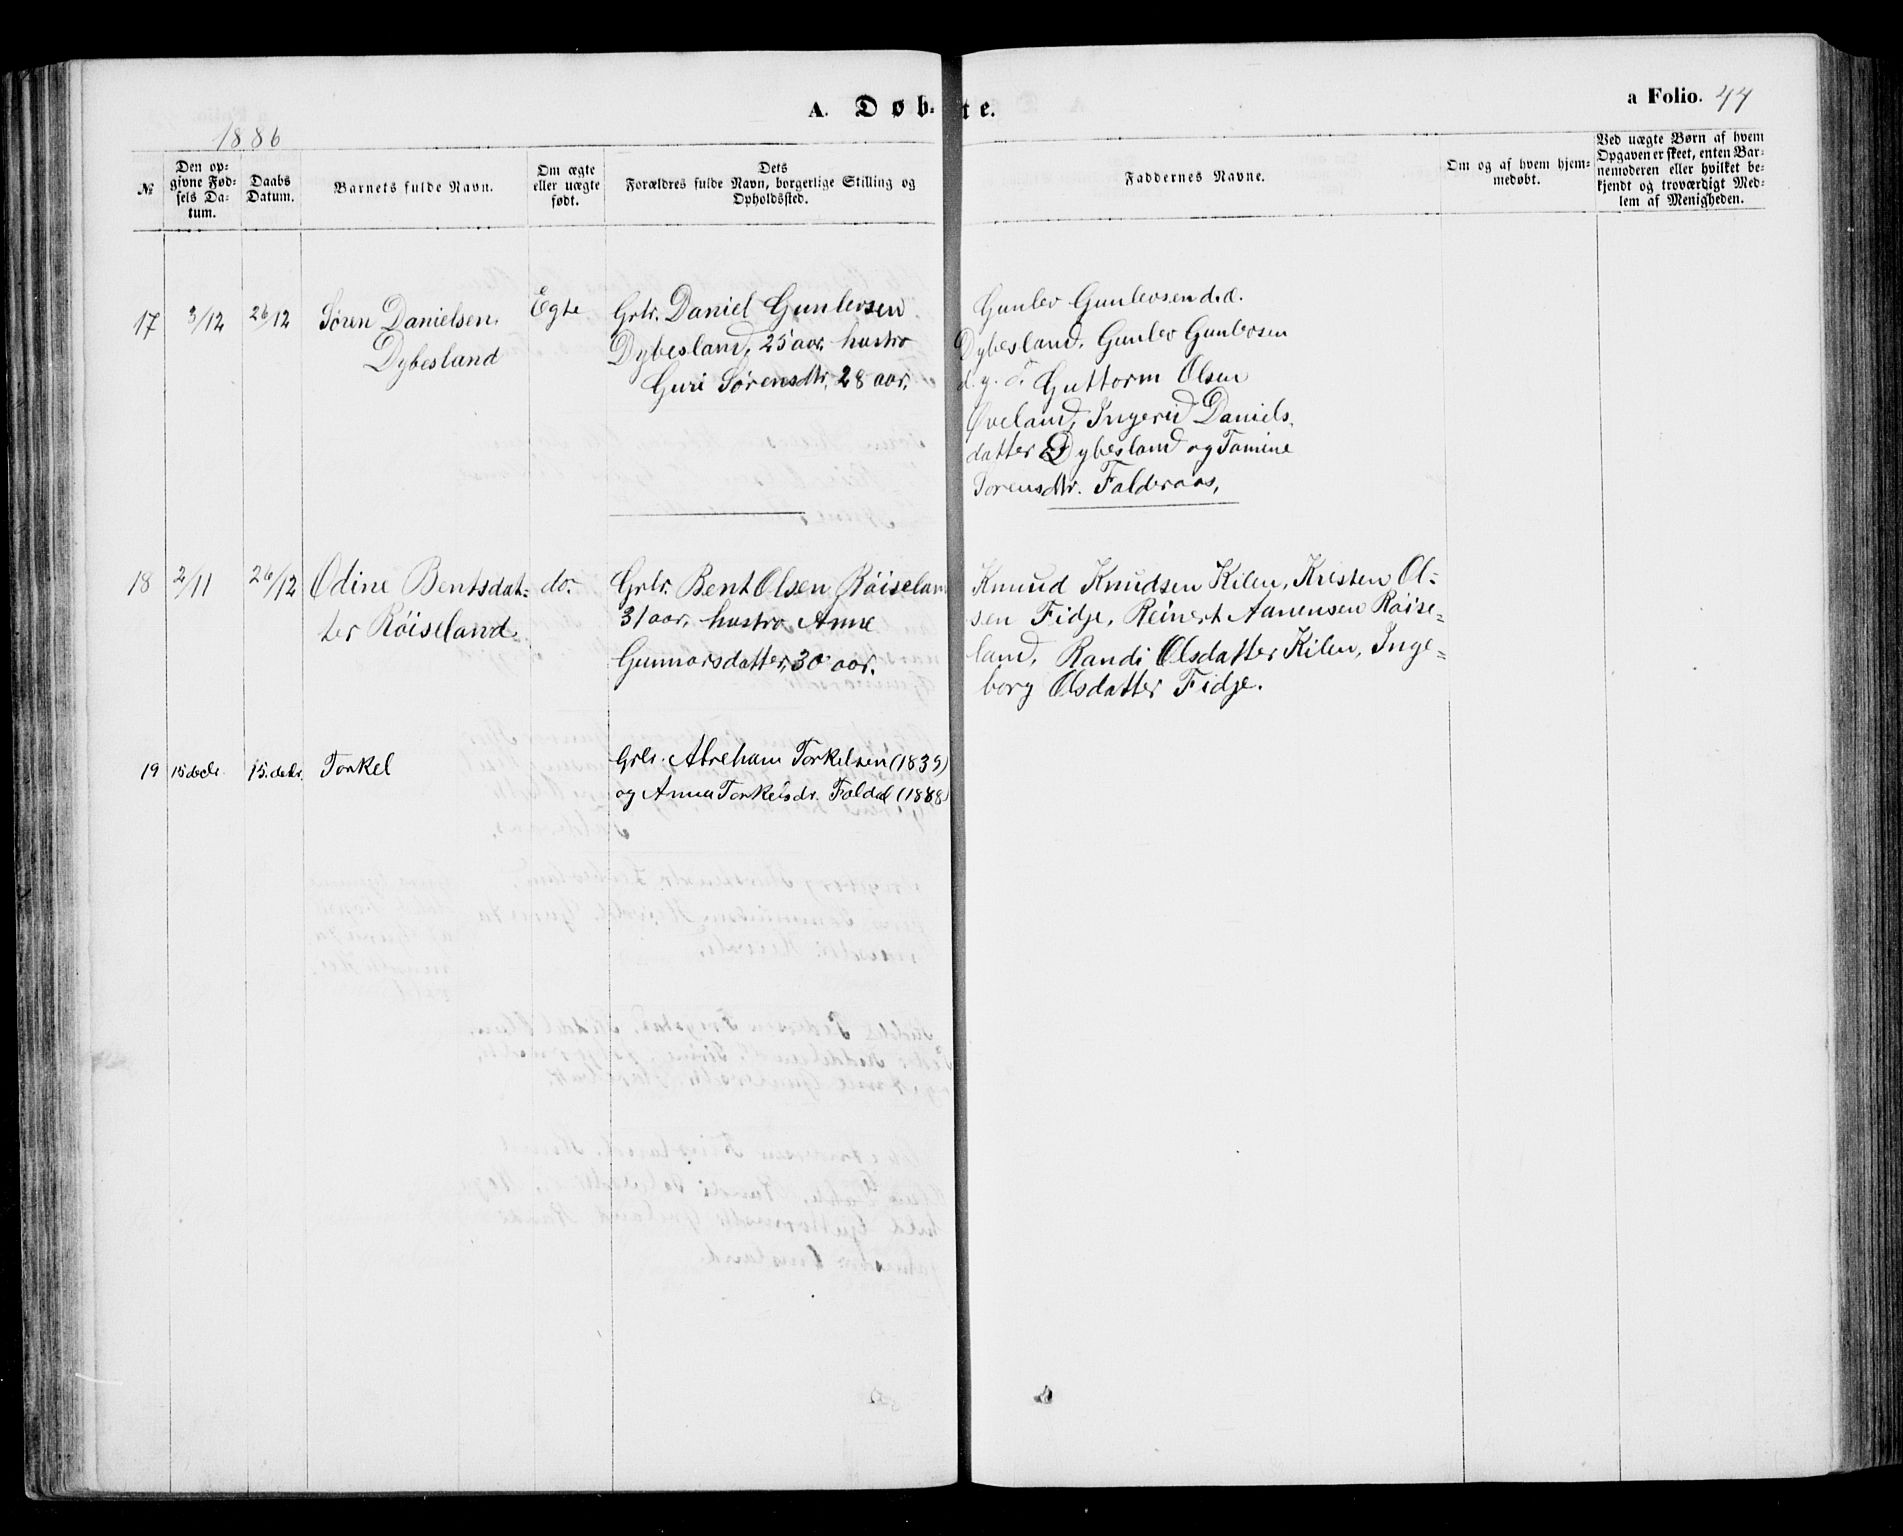 A. Døb-te.
a Folio. 44
1886
№
Den op-
givne Fød-
sels Da-
tum.
Daabs
Datum.
Barnets fulde Navn.
Om ægte
eller uægte
født.
Dets
Forældres fulde Navn, borgerlige Stilling og
Opholdssted.
Faddernes Navne.
Om og af hvem hjem-
medøbt.
Ved uægte Børn af hvem
Opgaven er skeet, enten Bar-
nemoderen eller hvilket be-
kjendt og troværdigt Med-
lem af Menigheden.
17 3/12 26/12 Søren Danielsen
Dybesland
Egte
Grbr. Daniel Gunlevsen
Dybesland, 25 aar, hustro
Guri Sørensdtr, 28 aar.
Gunlev Gunlevsen d.æ.
Dybesland, Gunlev Gunlevsen
d. y. Guttorm Olsen
Øveland, Ingerid Daniels-
datter Dybesland og Tomine
Sørensdtr. Falderaas,
18 2/11 26/12 Odine Bentsdat-
ter Röiseland.
do.
Grbr. Bent Olsen Röiseland
31 aar, hustro Anne
Gunnarsdatter, 30 aar.
Knud Knudsen Kilen, Kristen Ol-
sen Fidje, Reinert Aanensen Röise-
land, Randi Olsdatter Kilen, Inge-
borg Olsdatter Fidje.
19 15 decbr. 15. decbr. Torkel
Grbr. Abraham Torkelsen (1839)
og Anna Torkelsdr. Foldal